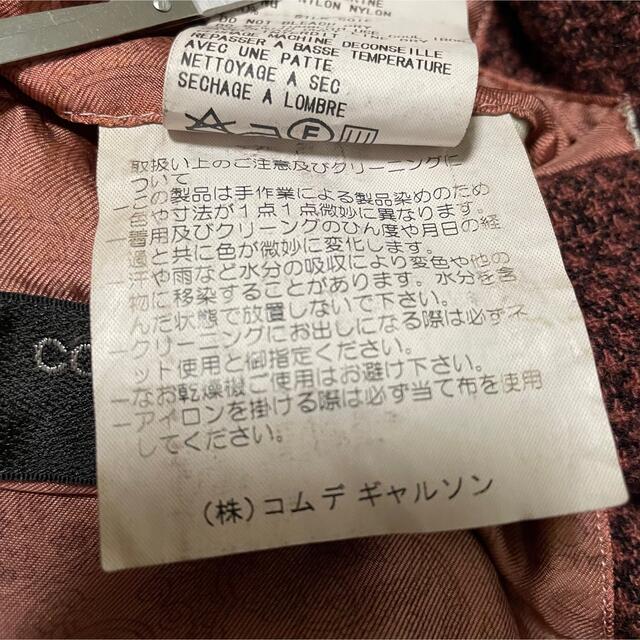 NYLON NYLON
DO NOT BLEACH
REPASSER MACHINE DECONSEILLE
AVEC UNE PATTE
A BASSE TEMPERATURE
NETTOYAGE A SEC
SECHAGE A LOMBRE
F
取扱い上のご注意及びクリーニングに
ついて
ーこの製品は手作業による製品染めのため
色や寸法が1点1点微妙に異なります。
ー着用及びクリーニングのひん度や月日の経
過と共に色が微妙に変化します。
ー汗や雨など水分の吸収により変色や他の
物に移染することがあります。水分を含
んだ状態で放置しないで下さい。
ークリーニングにお出しになる際は必ずネ
ット使用と御指定ください。
ーなお乾燥機ご使用はお避け下さい。
ーアイロンを掛ける際は必ず当て布を使用
してください。
(株)コムデ ギャルソン
CO